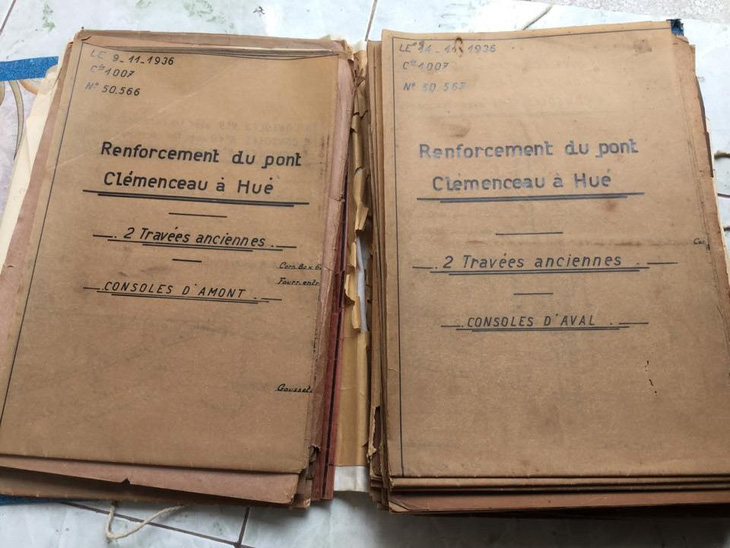 LE 9-11-1936
Cde 1007
N° 50.566
Renforcement du pont
Clémenceau à Hué
2 Travées anciennes
CONSOLES D'AMONT
Gousset
LE 14-11-1936
Cde 1007
N° 50.567
Renforcement du pont
Clémenceau à Hué
2 Travées anciennes
CONSOLES D'AVAL